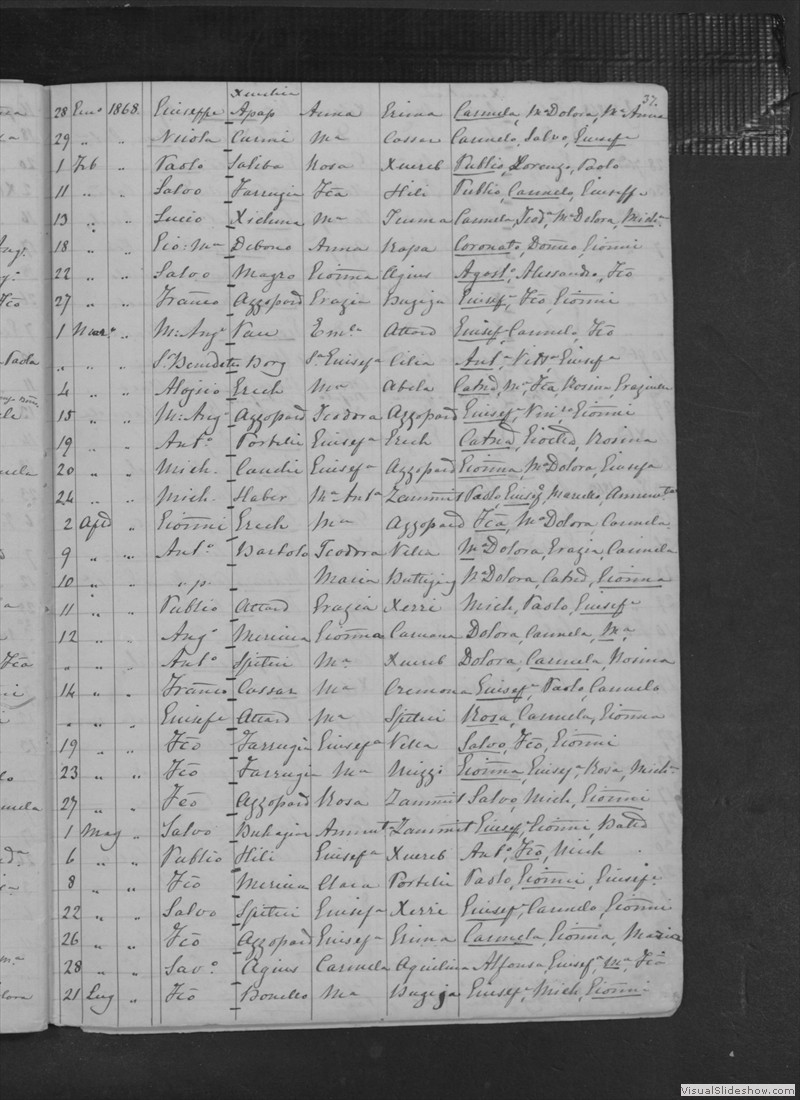 37.
Xuereb
28 Enn° 1868 Giuseppe Apap Anna Grima Carmela, Ma Dolora, Ma Anna
29 " " Nicola Curmi Ma Cassar Carmelo, Salvo, Giusepe
1 Feb " Paolo Saliba Rosa Xuereb Publio, Lorenzo, Paolo
11 " " Salvo Farrugia Fca Hili Publio, Carmelo, Giuseffe
13 " " Lucio Xichuna Ma Grima Carmela, Teoda, Ma Dolora, Micha
18 " " Gio: Ma Debono Anna Rapa Coronato, Domco, Gionni
22 " " Salvo Magro Gionna Agius Agosto, Alessandro, Fco
27 " " Franco Azzopard Grazia Bugeja Giusepe, Fco, Gionni
1 Marzo " Ma Anga Vau Ema Attard Giusef, Carmelo, Fco
" " " Sr Benedetu Borg Sa Giusepa Cilia Anta, Vitta, Giusepa
4 " " Aloisio Grech Ma Abela Catrd, Ma, Fca, Rosina, Graziella
15 " " Ma Ang Azzopard Teodora Azzopard Giusep, Vin°, Gionni
19 " " Anto Portelli Giusepa Grech Catrd, Rosina
20 " " Mich. Caruchi Giusepa Azzopard Gionna, Ma Dolora, Giusepa
24 " " Mich. Haber Ma Anta Zammit Paolo, Giuse, Annuta
2 Aple " Gionni Grech Ma Azzopard Fca, Ma Dolora, Carmela
9 " " Anto Bartolo Teodora Vella Ma Dolora, Grazia, Carmela
10 " " n.p. Maria Buttigieg Ma Dolora, Catrd, Gionna
11 " " Publio Attard Grazia Xerri Mich, Paolo, Giusepe
12 " " Ang° Mercieca Gionna Camana Dolora, Carmela, Ma
" " " Anto Spiteri Ma Xuereb Dolora, Carmela Rosina
14 " " Franco Cassar Ma Cremona Giusepe, Paolo, Carmelo
" " Giusepe Attard Ma Spiteri Rosa, Carmela, Gionna
19 " " Fco Farrugia Giusepa Vella Salvo, Fco, Gionni
23 " " Fco Farrugia Ma Mizzi Gionna, Giusepa, Rosa, Micha
27 " " Fco Azzopard Rosa Zammit Salvo, Mich, Gionni
1 Mag " Salvo Buhagiar Annunta Zammit Giusep, Gionni
6 " " Publio Hili Giusepa Xuereb Anto, Fco, Mich
8 " " Fco Mercieca Clara Portelli Paolo, Gionni, Giusepe
22 " " Salvo Spiteri Giusepa Xerri Giusep, Carmelo, Gionni
26 " " Fco Azzopard Giusepa Grima Carmela, Gionna, Maria
28 " " Savo Agius Carmela Aquilina Alfonsa, Giusepa, Ma, Fca
21 Lug " Fco Bonello Ma Bugeja Giusepe, Mich, Gionni
VisualSlideshow.com